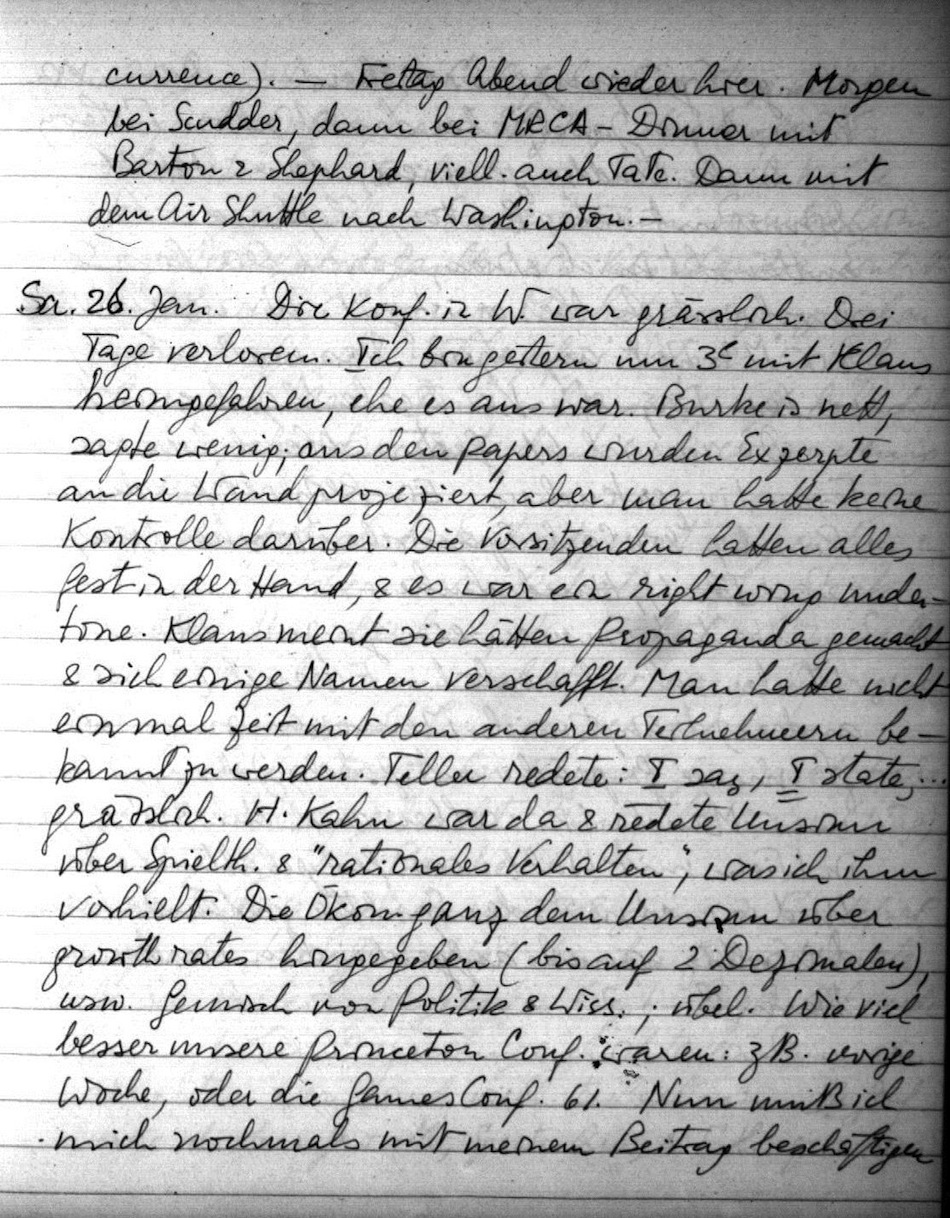 currence). — Freitag Abend wieder hier. Morgen
bei Scudder, dann bei MRCA – Dinner mit
Barton & Shephard, viell. auch Tate. Dann mit
dem Air Shuttle nach Washington. —
Sa. 26. Jan. Die Konf. in W. war grässlich. Drei
Tage verloren. Ich bin gestern um 3ᶜ mit Klaus
heimgefahren, ehe es aus war. Burke is nett,
sagte wenig; aus den papers wurden Exzerpte
an die Wand projeziert, aber man hatte keine
Kontrolle darüber. Die Vorsitzenden hatten alles
fest in der Hand, & es war ein right wing under-
tone. Klaus meint sie hätten Propaganda gemacht
& sich einige Namen verschafft. Man hatte nicht
einmal Zeit mit den anderen Teilnehmern be-
kannt zu werden. Teller redete: I say, I state, ...
grässlich. H. Kahn war da & redete Unsinn
über Spielth. & "rationales Verhalten", was ich ihm
vorhielt. Die Ökon ganz dem Unsinn über
growth rates hingegeben (bis auf 2 Dezimalen),
usw. Gemisch von Politik & Wiss.; übel. Wie viel
besser unsere Princeton Conf. waren: z.B. vorige
Woche, oder die Games Conf. 61. Nun muß ich
mich nochmals mit meinem Beitrag beschäftigen